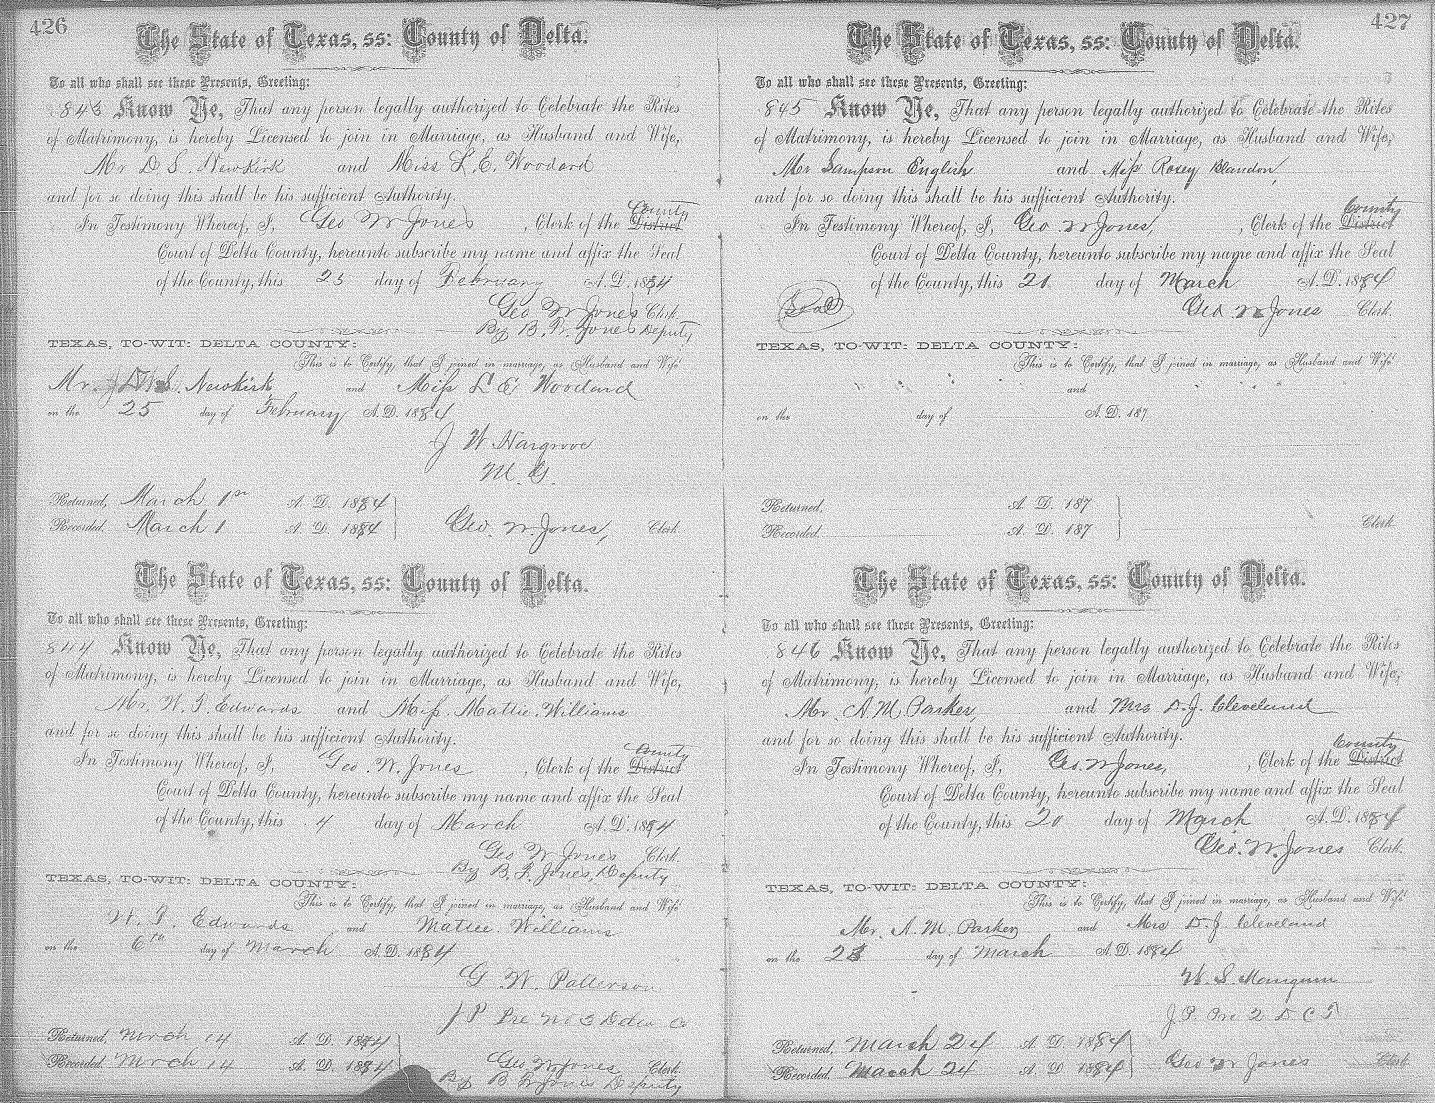 426
The State of Texas, ss: County of Delta.
To all who shall see these Presents, Greeting:
843 Know Ye, That any person legally authorized to Celebrate the Rites
of Matrimony, is hereby Licensed to join in Marriage, as Husband and Wife,
Mr D. S. Newkirk and Miss L. E. Woodard
and for so doing this shall be his sufficient Authority.
County
In Testimony Whereof, I, Geo W Jones, Clerk of the District
Court of Delta County, hereunto subscribe my name and affix the Seal
of the County, this 25 day of February A.D. 1884
Geo W Jones Clerk.
By B. F. Jones Deputy
TEXAS, TO-WIT: DELTA COUNTY:
This is to Certify, that I joined in marriage, as Husband and Wife
Mr. S. Newkirk and Miss L E Woodard
on the 25 day of February A.D. 1884
J W Hargrove
M. G.
Returned, March 1st A. D. 1884
Recorded. March 1 A. D. 1884 Geo. W. Jones, Clerk
The State of Texas, ss: County of Delta.
To all who shall see these Presents, Greeting:
844 Know Ye, That any person legally authorized to Celebrate the Rites
of Matrimony, is hereby Licensed to join in Marriage, as Husband and Wife,
Mr. Edwards and Miss. Mattie. Williams
and for so doing this shall be his sufficient Authority.
County
In Testimony Whereof, I, Geo. W. Jones, Clerk of the District
Court of Delta County, hereunto subscribe my name and affix the Seal
of the County, this 4 day of March A.D. 1884
Geo W Jones Clerk.
By B. F. Jones, Deputy
TEXAS, TO-WIT: DELTA COUNTY:
This is to Certify, that I joined in marriage, as Husband and Wife
Edwards and Mattie. Williams
on the 6th day of March A.D. 1884
G. W. Patterson
J P Pre No 3 Delta Co
Returned, March 14 A. D. 1884
Recorded. March 14 A. D. 1884 Geo W Jones Clerk
By B F Jones Deputy
427
The State of Texas, ss: County of Delta.
To all who shall see these Presents, Greeting:
845 Know Ye, That any person legally authorized to Celebrate the Rites
of Matrimony, is hereby Licensed to join in Marriage, as Husband and Wife,
Mr Sampson English and Miss Rosey Blandon,
and for so doing this shall be his sufficient Authority.
County
In Testimony Whereof, I, Geo W Jones, Clerk of the District
Court of Delta County, hereunto subscribe my name and affix the Seal
of the County, this 21 day of March A.D. 1884
Seal
Geo W Jones Clerk.
TEXAS, TO-WIT: DELTA COUNTY:
This is to Certify, that I joined in marriage, as Husband and Wife
and
on the day of A.D. 187
Returned, A. D. 187
Recorded. A. D. 187 Clerk.
The State of Texas, ss: County of Delta.
To all who shall see these Presents, Greeting:
846 Know Ye, That any person legally authorized to Celebrate the Rites
of Matrimony, is hereby Licensed to join in Marriage, as Husband and Wife,
Mr. A. M. Parker, and Mrs D. J. Cleveland
and for so doing this shall be his sufficient Authority.
County
In Testimony Whereof, I, Geo. W Jones, Clerk of the District
Court of Delta County, hereunto subscribe my name and affix the Seal
of the County, this 20 day of March A.D. 1884
Geo. W. Jones Clerk.
TEXAS, TO-WIT: DELTA COUNTY:
This is to Certify, that I joined in marriage, as Husband and Wife
Mr. A. M. Parker and Mrs D. J. Cleveland
on the 23 day of March A.D. 1884
W. S. Mangum
J P Pre 2 D C T
Returned, March 24 A. D. 1884
Recorded. March 24 A. D. 1884 Geo W Jones Clerk